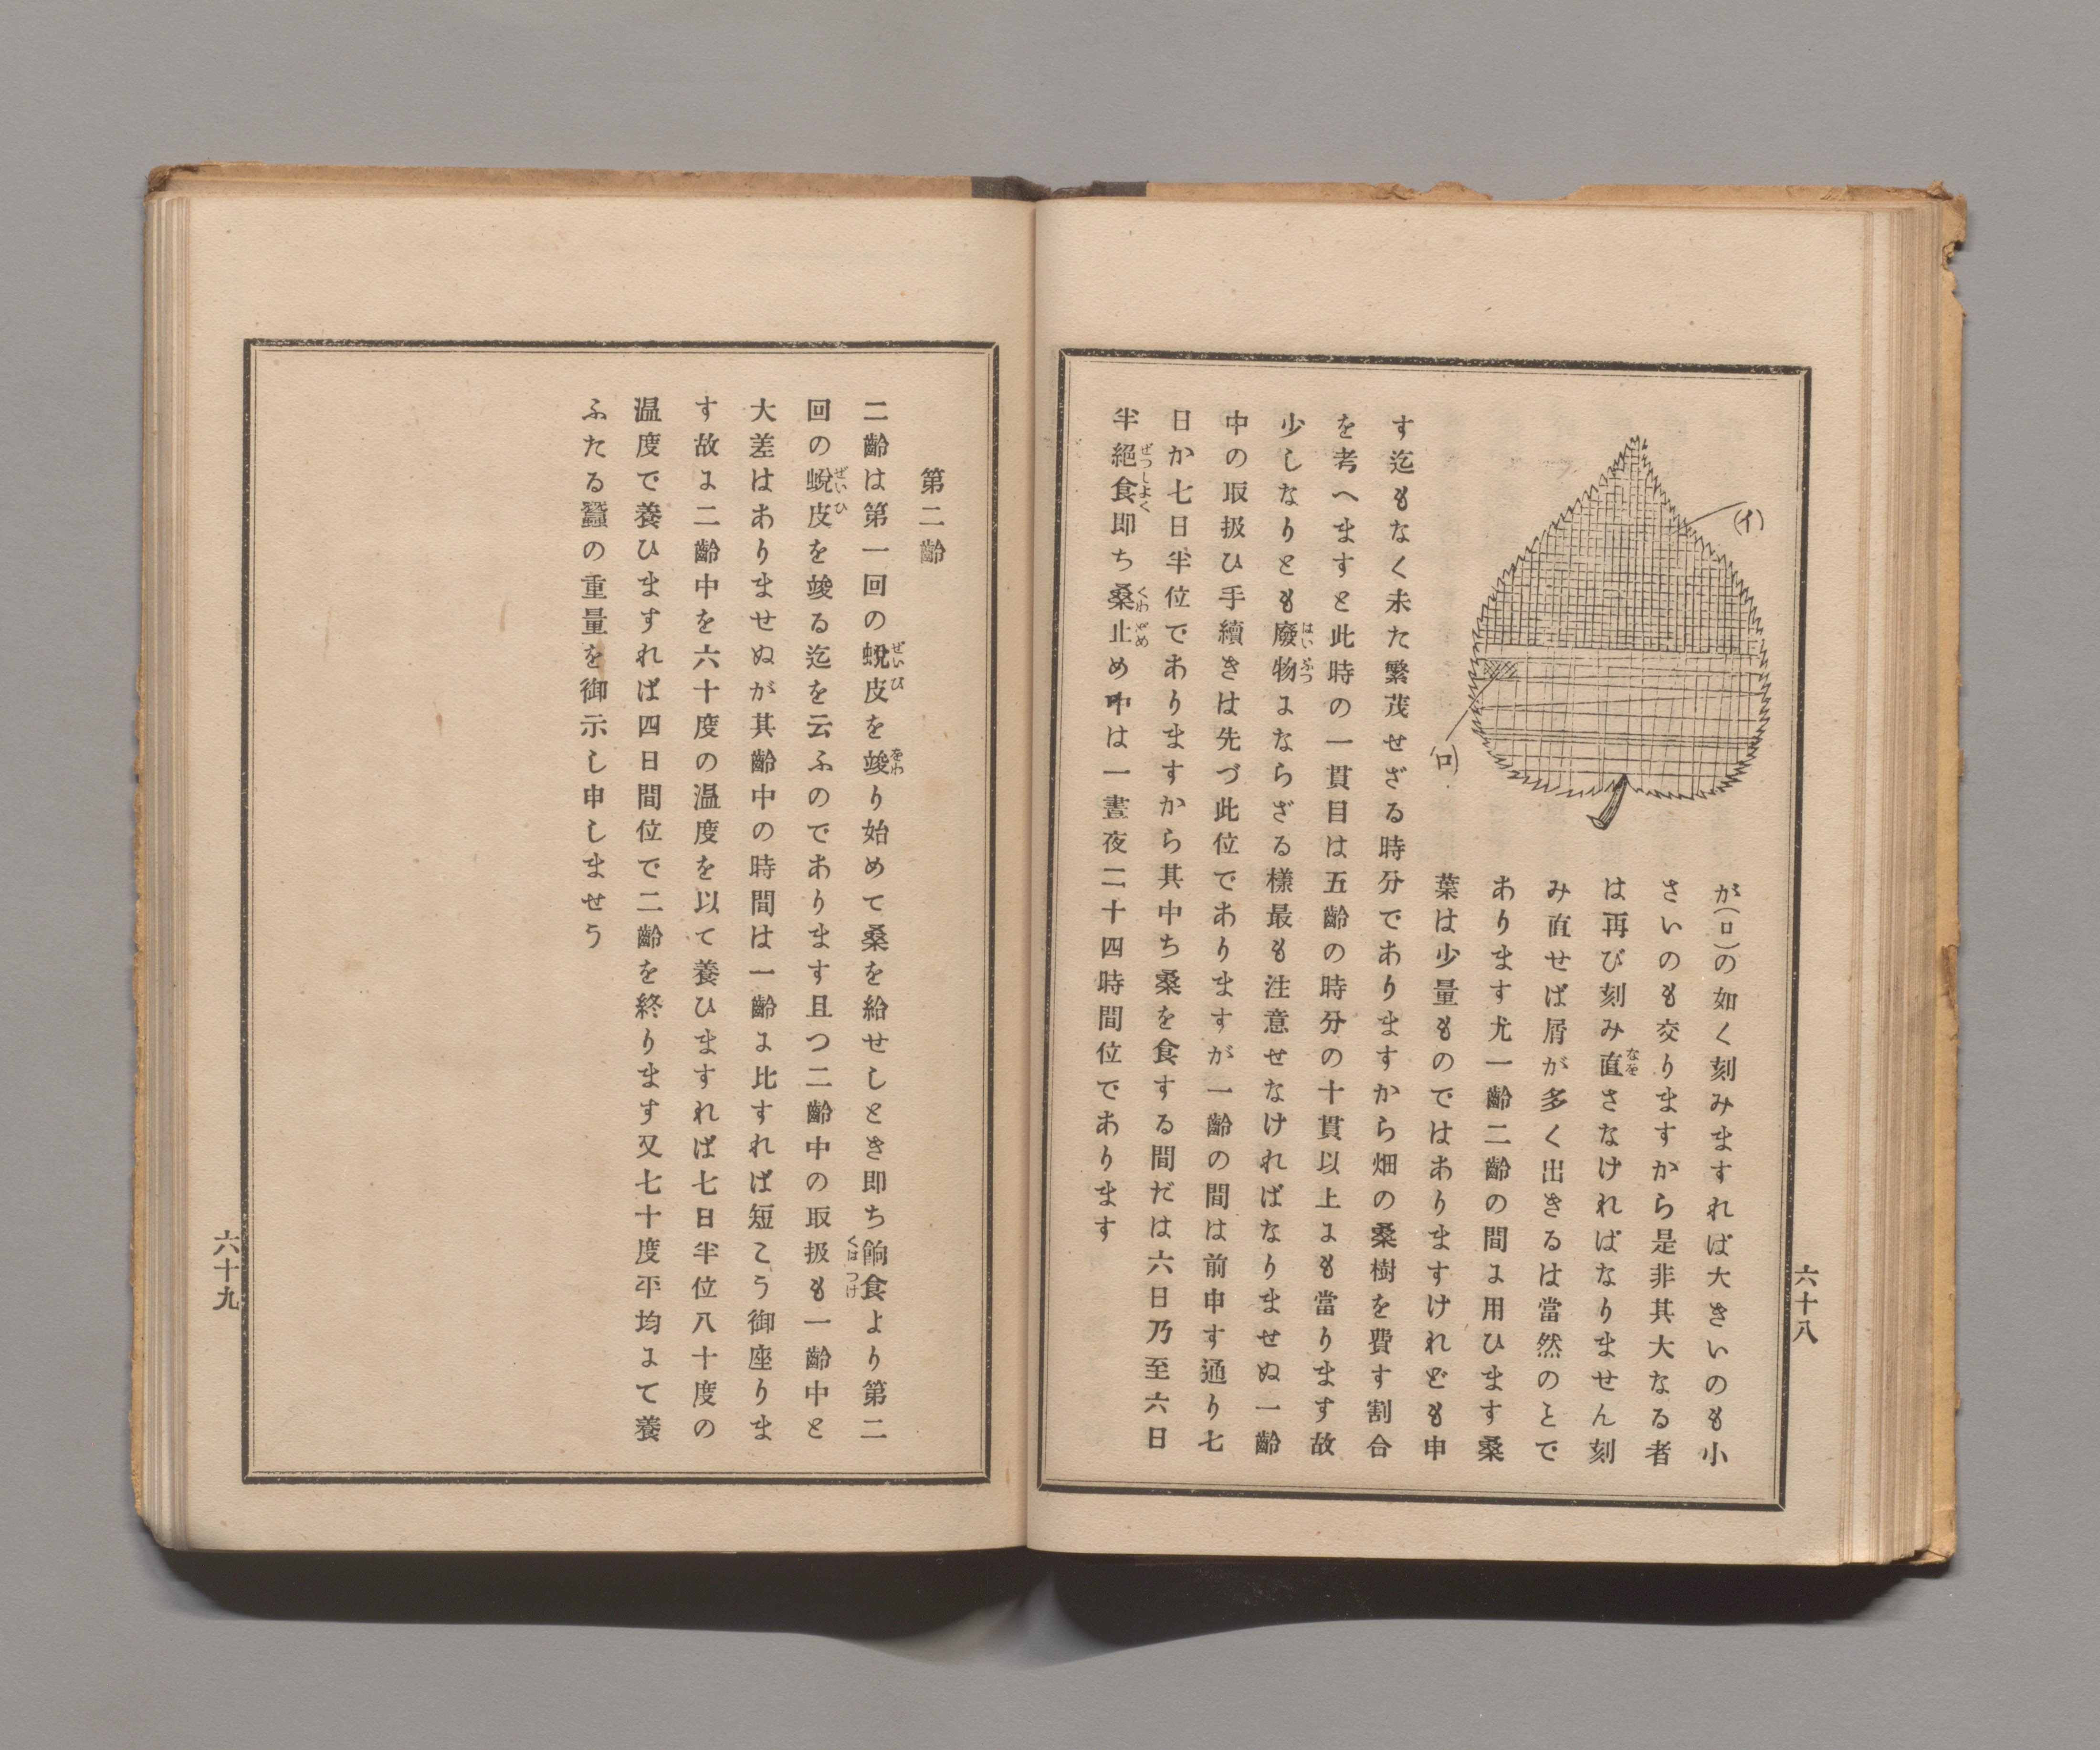 (イ)
(ロ)
が(ロ)の如く刻みますれば大きいのも小
さいのも交りますから是非其大なる者
は再び刻み直さなければなりません刻
み直せば屑が多く出きるは當然のとで
あります尤一齡二齡の間に用ひます桑
葉は少量ものではありますけれども申
す迄もなく未た繁茂せざる時分でありますから畑の桑樹を費す割合
を考へますと此時の一貫目は五齡の時分の十貫以上にも當ります故
少しなりとも廢物にならざる樣最も注意せなければなりませぬ一齡
中の取扱ひ手續きは先づ此位でありますが一齡の間は前申す通り七
日か七日半位でありますから其中ち桑を食する間だは六日乃至六日
半絕食即ち桑止め中は一晝夜二十四時間位であります
六十八
第二齡
二齡は第一回の蛻皮を竣り始めて桑を給せしとき即ち餉食より第二
回の蛻皮を竣る迄を云ふのであります且つ二齡中の取扱も一齡中と
大差はありませぬが其齡中の時間は一齡に比すれば短こう御座りま
す故に二齡中を六十度の温度を以て養ひますれば七日半位八十度の
温度で養ひますれば四日間位で二齡を終ります又七十度平均にて養
ふたる蠶の重量を御示し申しませう
六十九